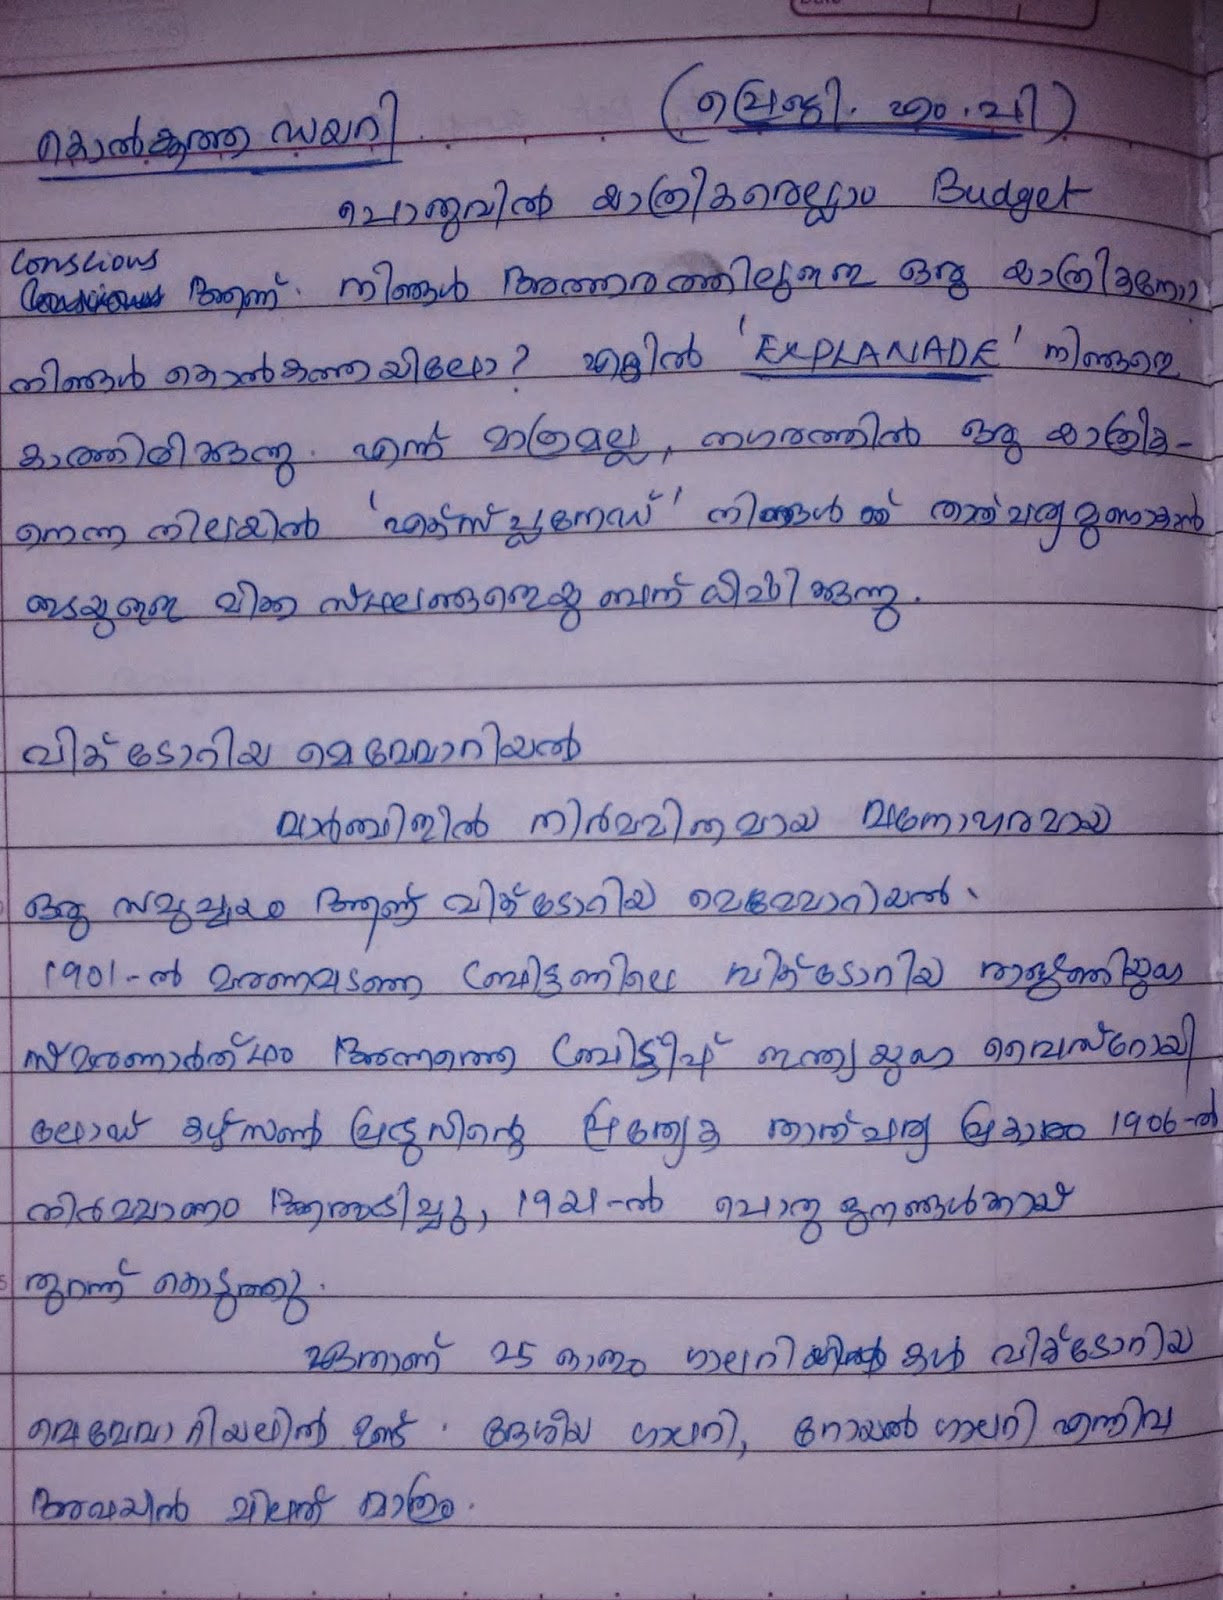 കൊൽകത്ത ഡയറി (പ്രെജി. എം.പി)
പൊതുവിൽ യാത്രികരെല്ലാം Budget
Conscious ആണ്. നിങ്ങൾ അത്തരത്തിലുള്ള ഒരു യാത്രികനോ
നിങ്ങൾ കൊൽകത്തയിലോ? എങ്കിൽ 'EXPLANADE' നിങ്ങളെ
കാത്തിരിക്കുന്നു. എന്ന് മാത്രമല്ല, നഗരത്തിൽ ഒരു യാത്രിക-
നെന്ന നിലയിൽ 'എക്സ്പ്ലനേഡ്' നിങ്ങൾക്ക് താത്പര്യമുണ്ടാകാൻ
ഇടയുള്ള മിക്ക സ്ഥലങ്ങളെയും ബന്ധിപ്പിക്കുന്നു.
വിക്ടോറിയ മെമ്മോറിയൽ
മാർബിളിൽ നിർമ്മിതമായ മനോഹരമായ
ഒരു സമുച്ചയം ആണ് വിക്ടോറിയ മെമ്മോറിയൽ.
1901-ൽ മരണമടഞ്ഞ ബ്രിട്ടണിലെ വിക്ടോറിയ രാജ്ഞിയുടെ
സ്മരണാർത്ഥം അന്നത്തെ ബ്രിട്ടീഷ് ഇന്ത്യയുടെ വൈസ്റോയി
ലോഡ് കഴ്സൺ പ്രഭുവിന്റെ പ്രത്യേക താത്പര്യ പ്രകാരം 1906-ൽ
നിർമ്മാണം ആരംഭിച്ചു, 1921-ൽ പൊതുജനങ്ങൾക്കായ്
തുറന്ന് കൊടുത്തു.
ഏതാണ്ട് 25 ഓളം ഗാലറികൾ വിക്ടോറിയ
മെമ്മോറിയലിൽ ഉണ്ട്. ദേശീയ ഗാലറി, റോയൽ ഗാലറി എന്നിവ
അവയിൽ ചിലത് മാത്രം.